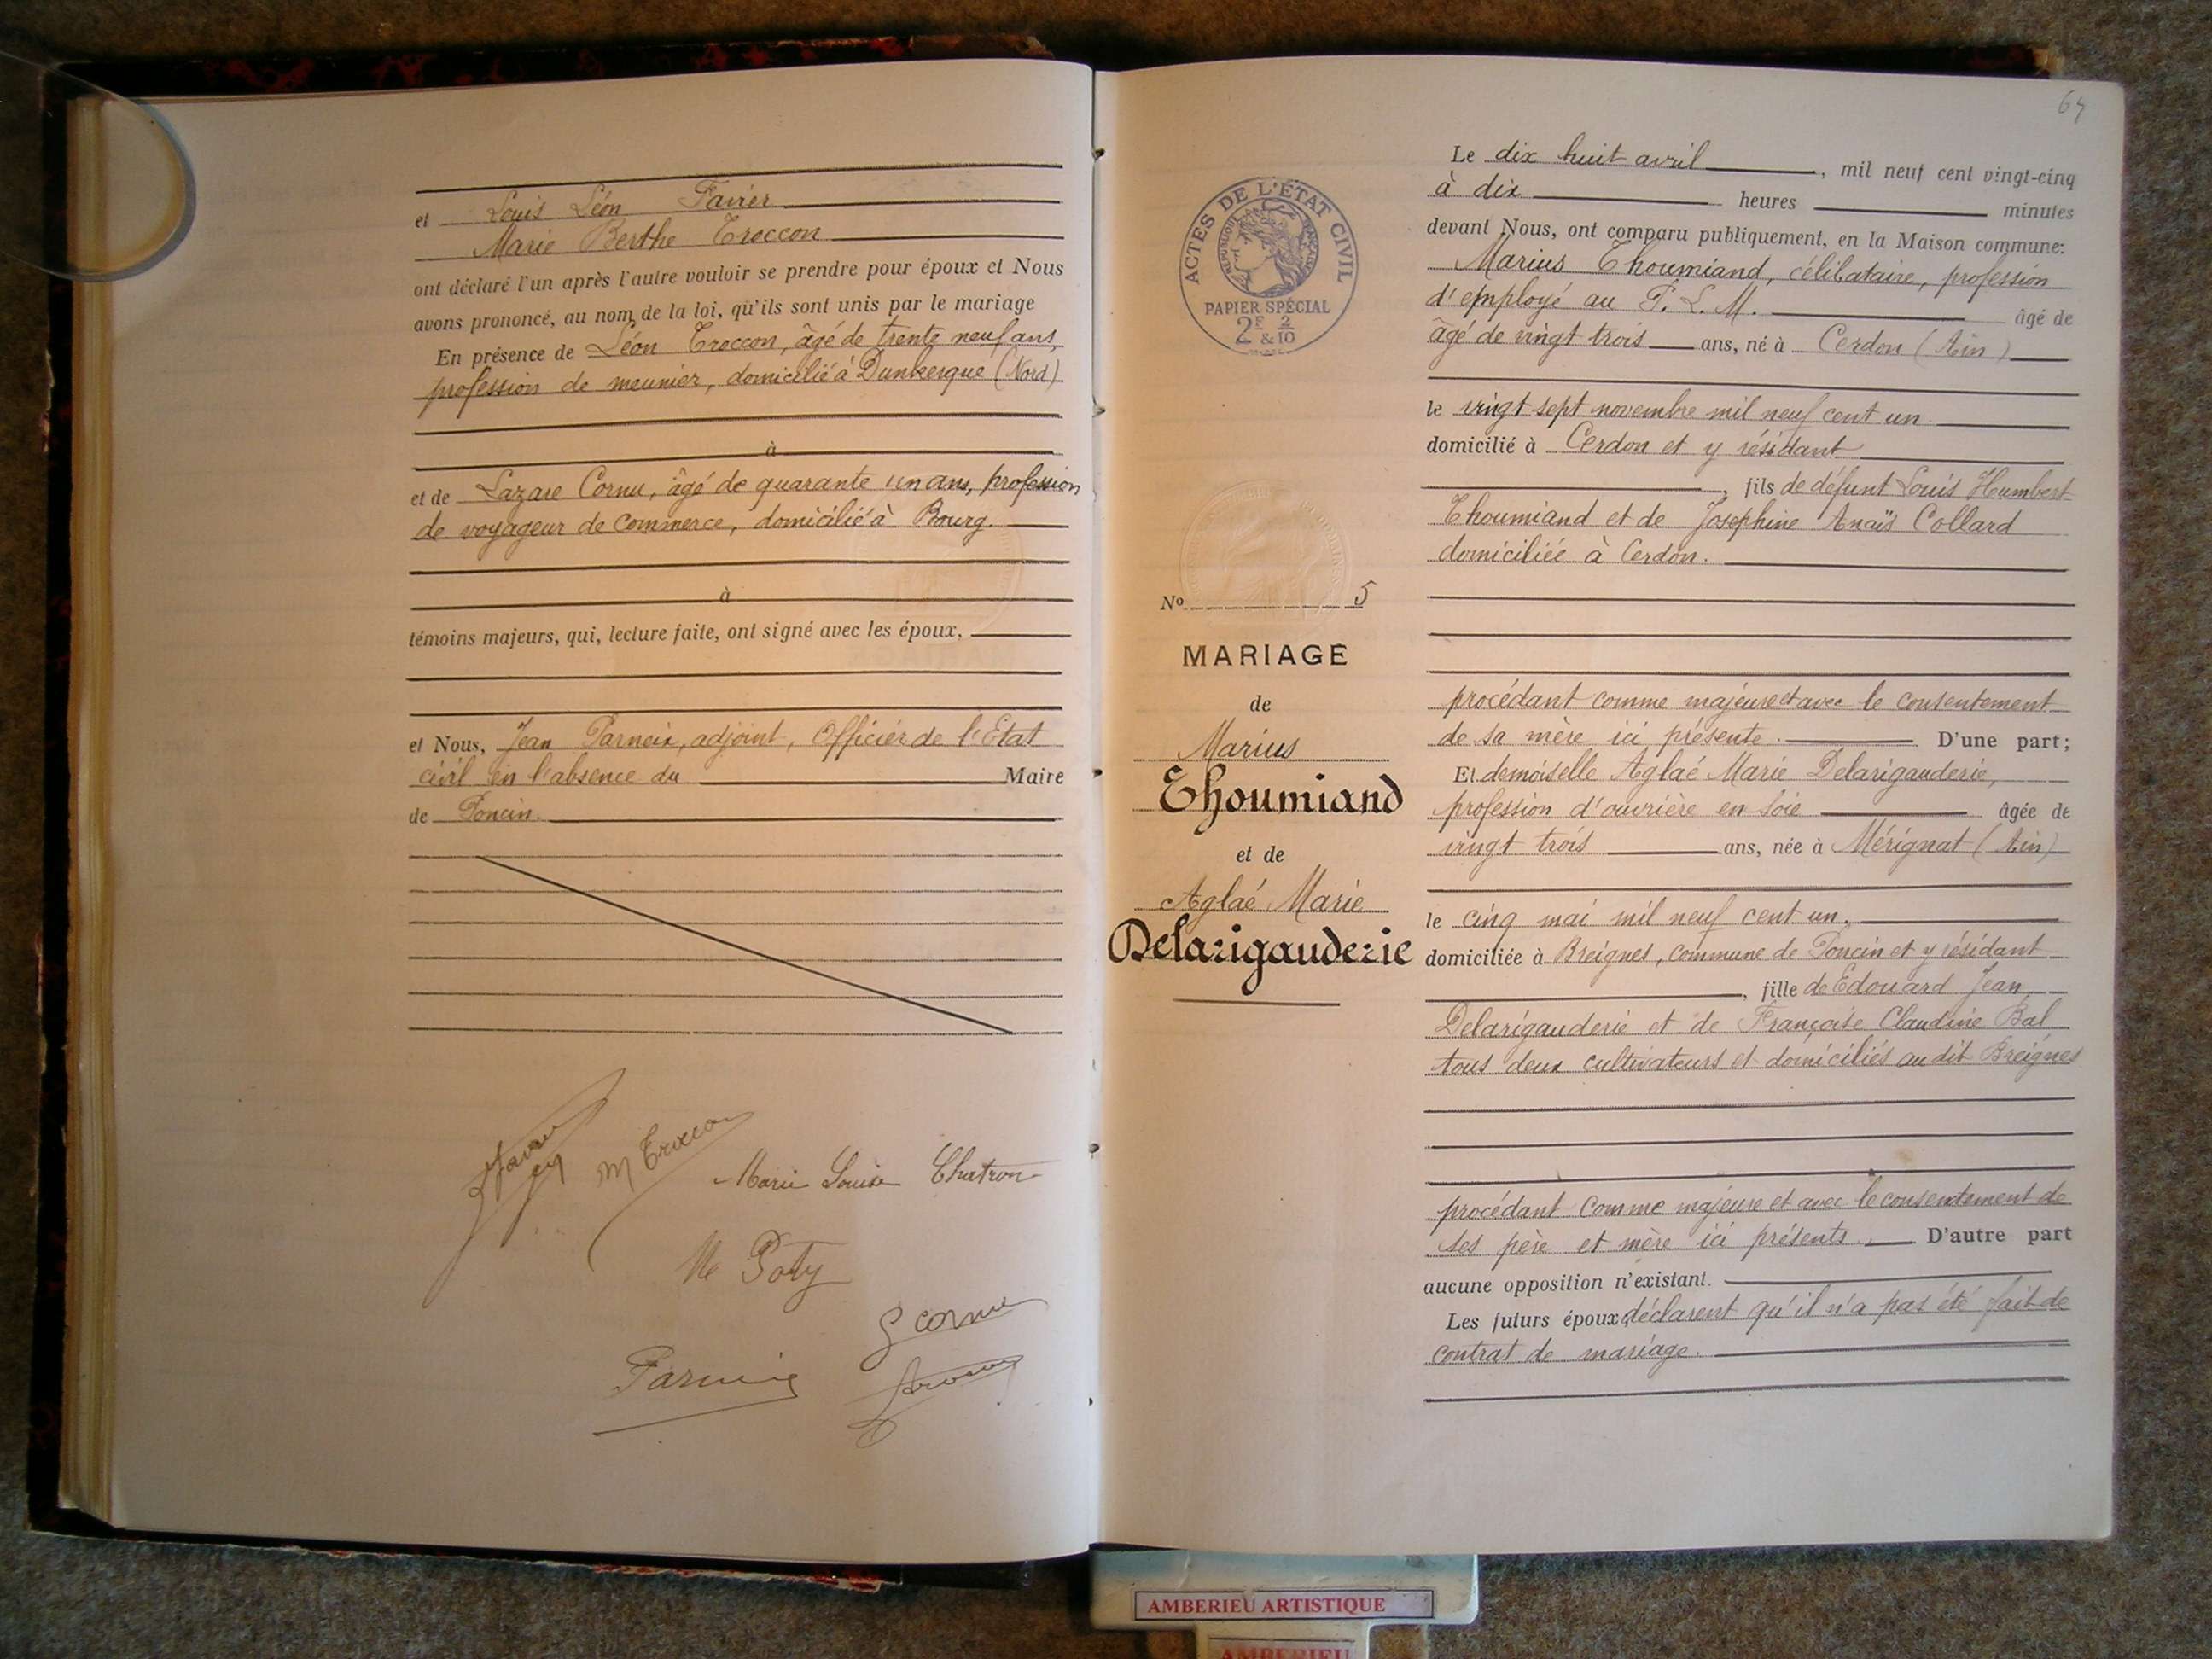 et Louis Léon Favier
Marie Berthe Troccon
ont déclaré l'un après l'autre vouloir se prendre pour époux et Nous
avons prononcé, au nom de la loi, qu'ils sont unis par le mariage
En présence de Léon Troccon, âgé de trente neuf ans,
profession de meunier, domicilié à Dunkerque (Nord)
à
et de Lazare Cornu, âgé de quarante un ans, profession
de voyageur de commerce, domicilié à Bourg.
à
témoins majeurs, qui, lecture faite, ont signé avec les époux,
et Nous, Jean Parneix, adjoint, Officier de l'Etat
civil en l'absence du Maire
de Poncin.
M Troccon
Marie Louise Chatron
M Poty
L Cornu
Parneix
64
ACTES DE L'ÉTAT CIVIL
RÉPUBLIQUE FRANÇAISE
PAPIER SPÉCIAL
2F & 2/10
No 5
MARIAGE
de
Marius
Thoumiand
et de
Aglaé Marie
Delarigauderie
Le dix huit avril, mil neuf cent vingt-cinq
à dix heures minutes
devant Nous, ont comparu publiquement, en la Maison commune:
Marius Thoumiand, célibataire, profession
d'employé au P. L. M. âgé de
âgé de vingt trois ans, né à Cerdon (Ain)
le vingt sept novembre mil neuf cent un
domicilié à Cerdon et y résidant
, fils de défunt Louis Humbert
Thoumiand et de Joséphine Anaïs Collard
domiciliée à Cerdon.
procédant comme majeur et avec le consentement
de sa mère ici présente. D'une part;
Et demoiselle Aglaé Marie Delarigauderie,
profession d'ouvrière en soie âgée de
vingt trois ans, née à Mérignat (Ain)
le cinq mai mil neuf cent un,
domiciliée à Breignes, commune de Poncin et y résidant
, fille de Edouard Jean
Delarigauderie et de Françoise Claudine Bal
tous deux cultivateurs et domiciliés au dit Breignes
procédant comme majeure et avec le consentement de
ses père et mère ici présents. D'autre part
aucune opposition n'existant.
Les futurs époux déclarent qu'il n'a pas été fait de
contrat de mariage.
AMBERIEU ARTISTIQUE
AMBERIEU